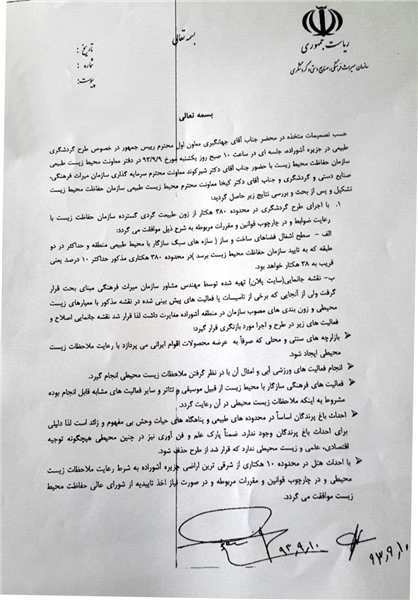 بسمه تعالی
ریاست جمهوری
سازمان میراث فرهنگی، صنایع دستی و گردشگری
تاریخ :
شماره :
پیوست :
بسمه تعالی
حسب تصمیمات متخذه در محضر جناب آقای جهانگیری معاون اول محترم رییس جمهور در خصوص طرح گردشگری
طبیعی در جزیره آشوراده، جلسه ای در ساعت ۱۰ صبح روز یکشنبه مورخ ۹۳/۹/۹ در دفتر معاونت محیط زیست طبیعی
سازمان حفاظت محیط زیست با حضور جناب آقای دکتر شیرکوند معاونت محترم سرمایه گذاری سازمان میراث فرهنگی،
صنایع دستی و گردشگری و جناب آقای دکتر کیخا معاونت محترم محیط زیست طبیعی سازمان حفاظت محیط زیست
تشکیل و پس از بحث و بررسی نتایج زیر حاصل گردید:
۱. با اجرای طرح گردشگری در محدوده ۳۸۰ هکتار از زون طبیعت گردی گسترده سازمان حفاظت محیط زیست با
رعایت ضوابط و در چارچوب قوانین و مقررات مربوطه به شرح ذیل موافقت می گردد:
الف - سطح اشغال فضاهای ساخت و ساز( سازه های سبک سازگار با محیط طبیعی منطقه و حداکثر در دو
طبقه که به تایید سازمان حفاظت محیط زیست برسد )در محدوده ۳۸۰ هکتاری مذکور حداکثر ۱۰ درصد یعنی
قریب به ۳۸ هکتار خواهد بود.
ب- نقشه جانمایی(سایت پلان) تهیه شده توسط مهندس مشاور سازمان میراث فرهنگی مبنای بحث قرار
گرفت ولی از آنجایی که برخی از تاسیسات یا فعالیت های پیش بینی شده در نقشه مذکور با معیارهای زیست
محیطی و زون بندی های مصوب سازمان در منطقه آشوراده مغایرت داشت لذا قرار شد نقشه جانمایی اصلاح و
فعالیت های زیر در طرح و اجرا مورد بازنگری قرار گیرد:
بازارچه های سنتی و محلی که صرفاً به عرضه محصولات اقوام ایرانی می پردازد با رعایت ملاحظات زیست
محیطی ایجاد شود.
انجام فعالیت های ورزشی آبی و امثال آن با در نظر گرفتن ملاحظات زیست محیطی انجام گیرد.
فعالیت های فرهنگی سازگار با محیط زیست از قبیل موسیقی و تئاتر و سایر فعالیت های مشابه قابل انجام بوده
مشروط به اینکه ملاحظات زیست محیطی در آن رعایت گردد.
احداث باغ پرندگان اساساً در محدوده های طبیعی و پناهگاه های حیات وحش بی مفهوم و زائد است لذا دلیلی
برای احداث باغ پرندگان وجود ندارد. ضمناً پارک علم و فن آوری نیز در چنین محیطی هیچگونه توجیه
اقتصادی، علمی و زیست محیطی ندارد که قرار شد از طرح حذف شود.
با احداث هتل در محدوده ۱۰ هکتاری از شرقی ترین اراضی جزیره آشوراده به شرط رعایت ملاحظات زیست
محیطی و در چارچوب قوانین و مقررات مربوطه و در صورت نیاز اخذ تاییدیه از شورای عالی حفاظت محیط
زیست موافقت می گردد.
۹۳،۹،۱۰
۹۳،۹،۱۰